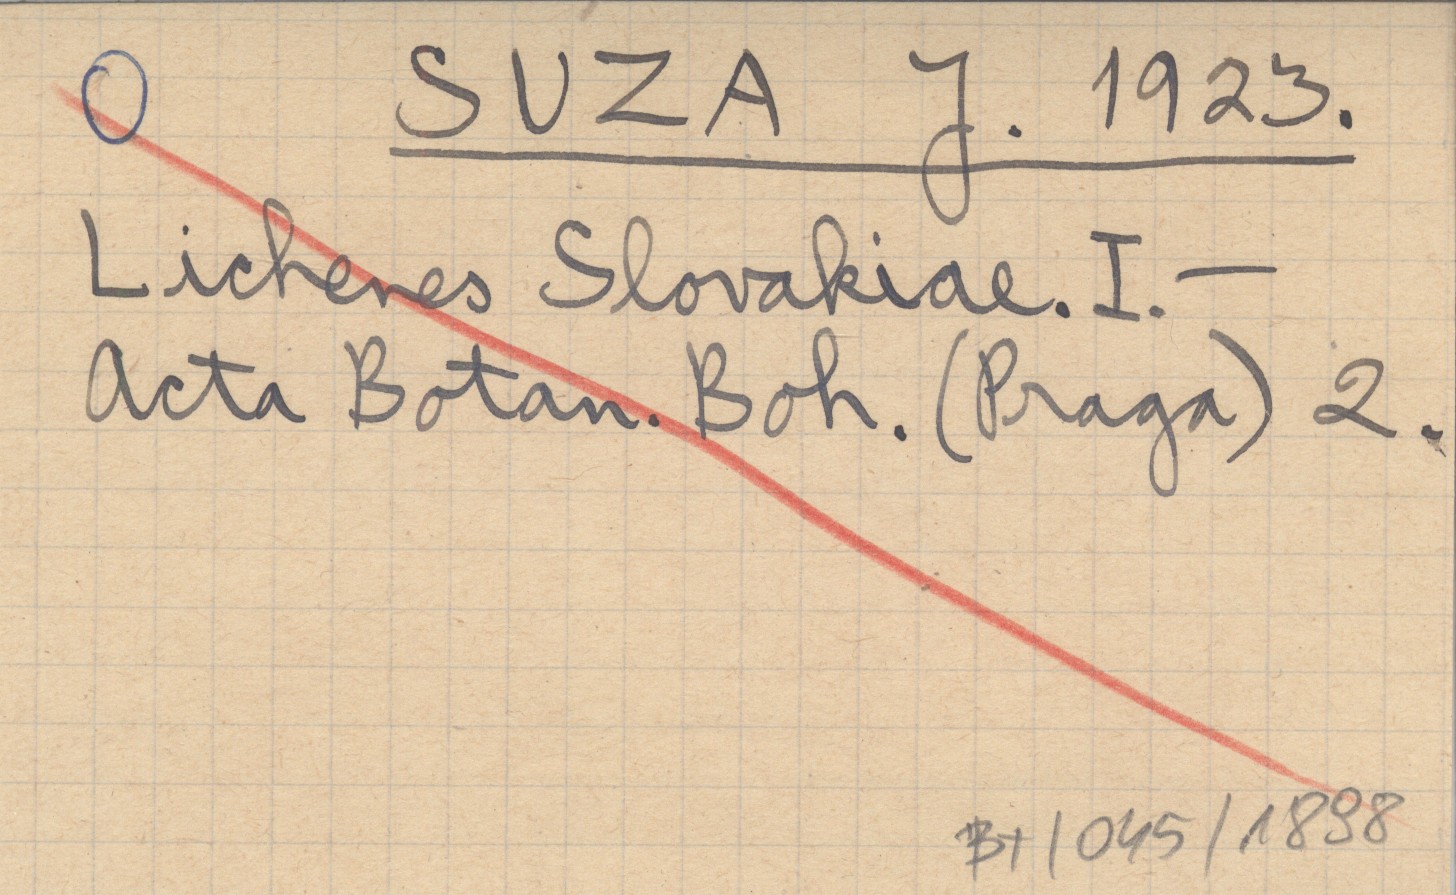 O SUZA J. 1923.
Lichenes Slovakiae. I. —
Acta Botan. Boh. (Praga) 2.
B+/045/1898